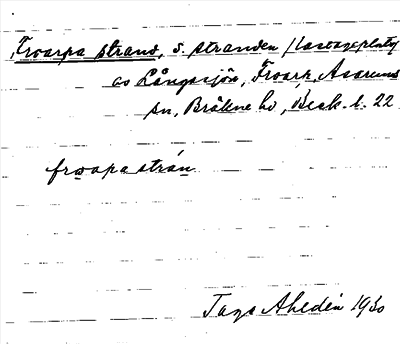 Froarpa strand, s. stranden /lastageplats/
av Långasjön, Froarp, Asarums
sn, Bräkne hd, Blek. l. 22
froapa strán
Tage Ahldén 1930